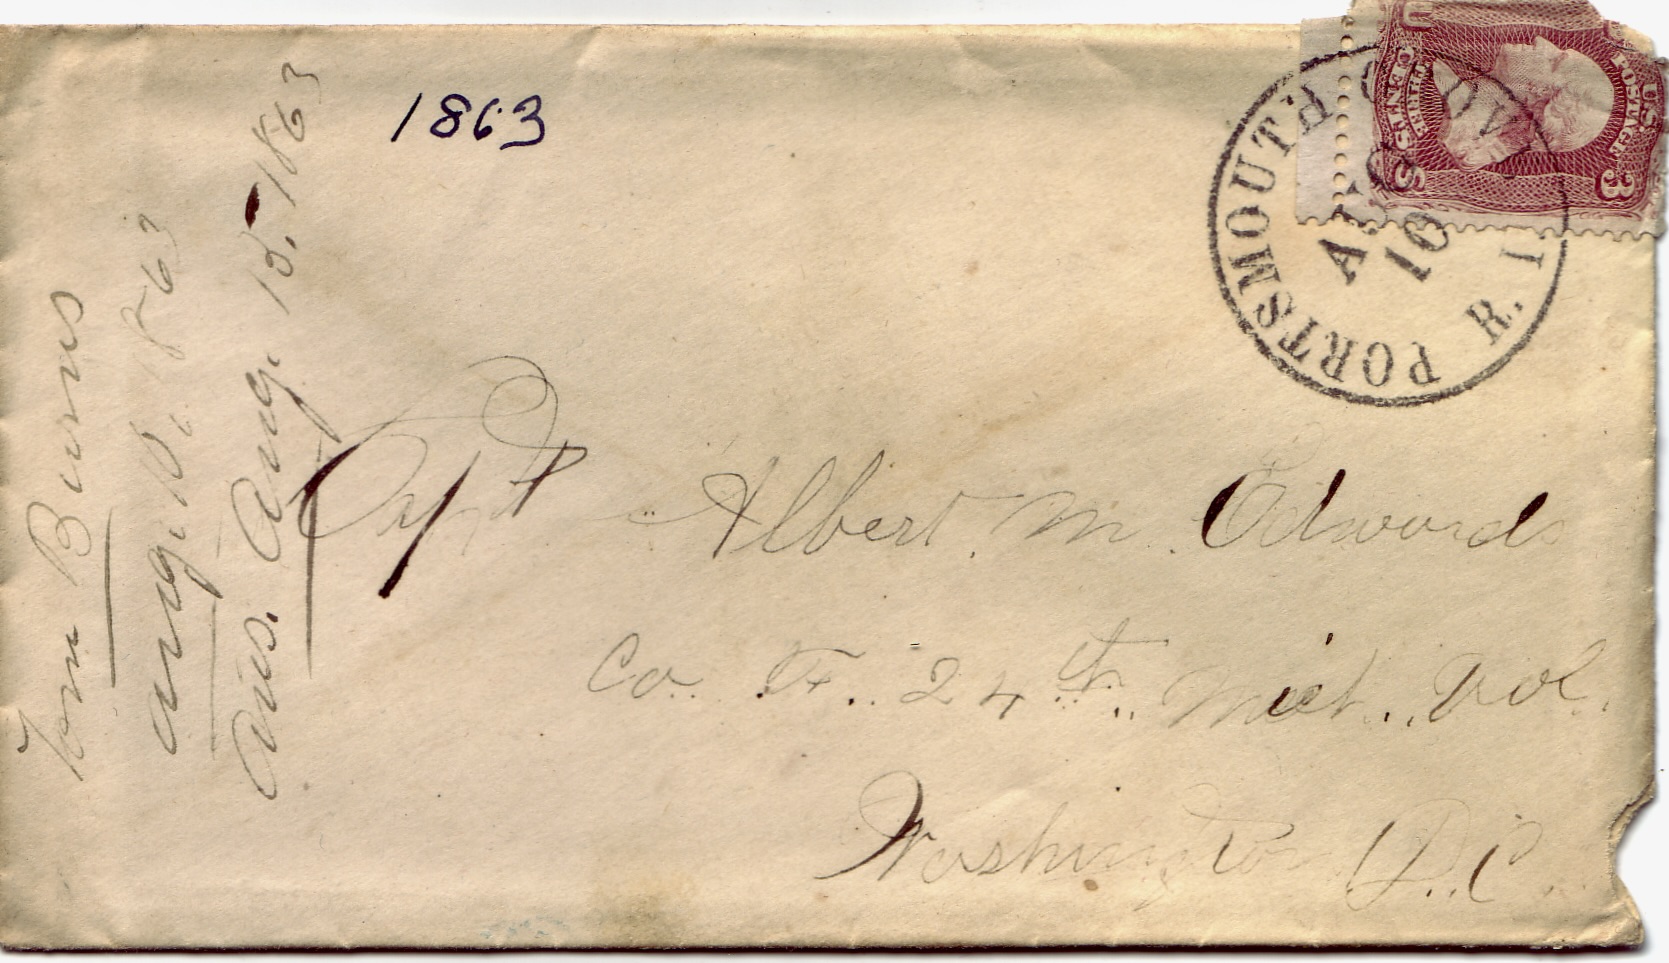 1863
Tom Burns
Aug. 10, 1863
Ans. Aug. 15. 1863
PORTSMOUTH GROVE R. I.
AUG
10
U.S. POSTAGE
THREE CENTS
3
Capt Albert M. Edwards
Co. F. 24th Mich. Vol.
Washington D. C.